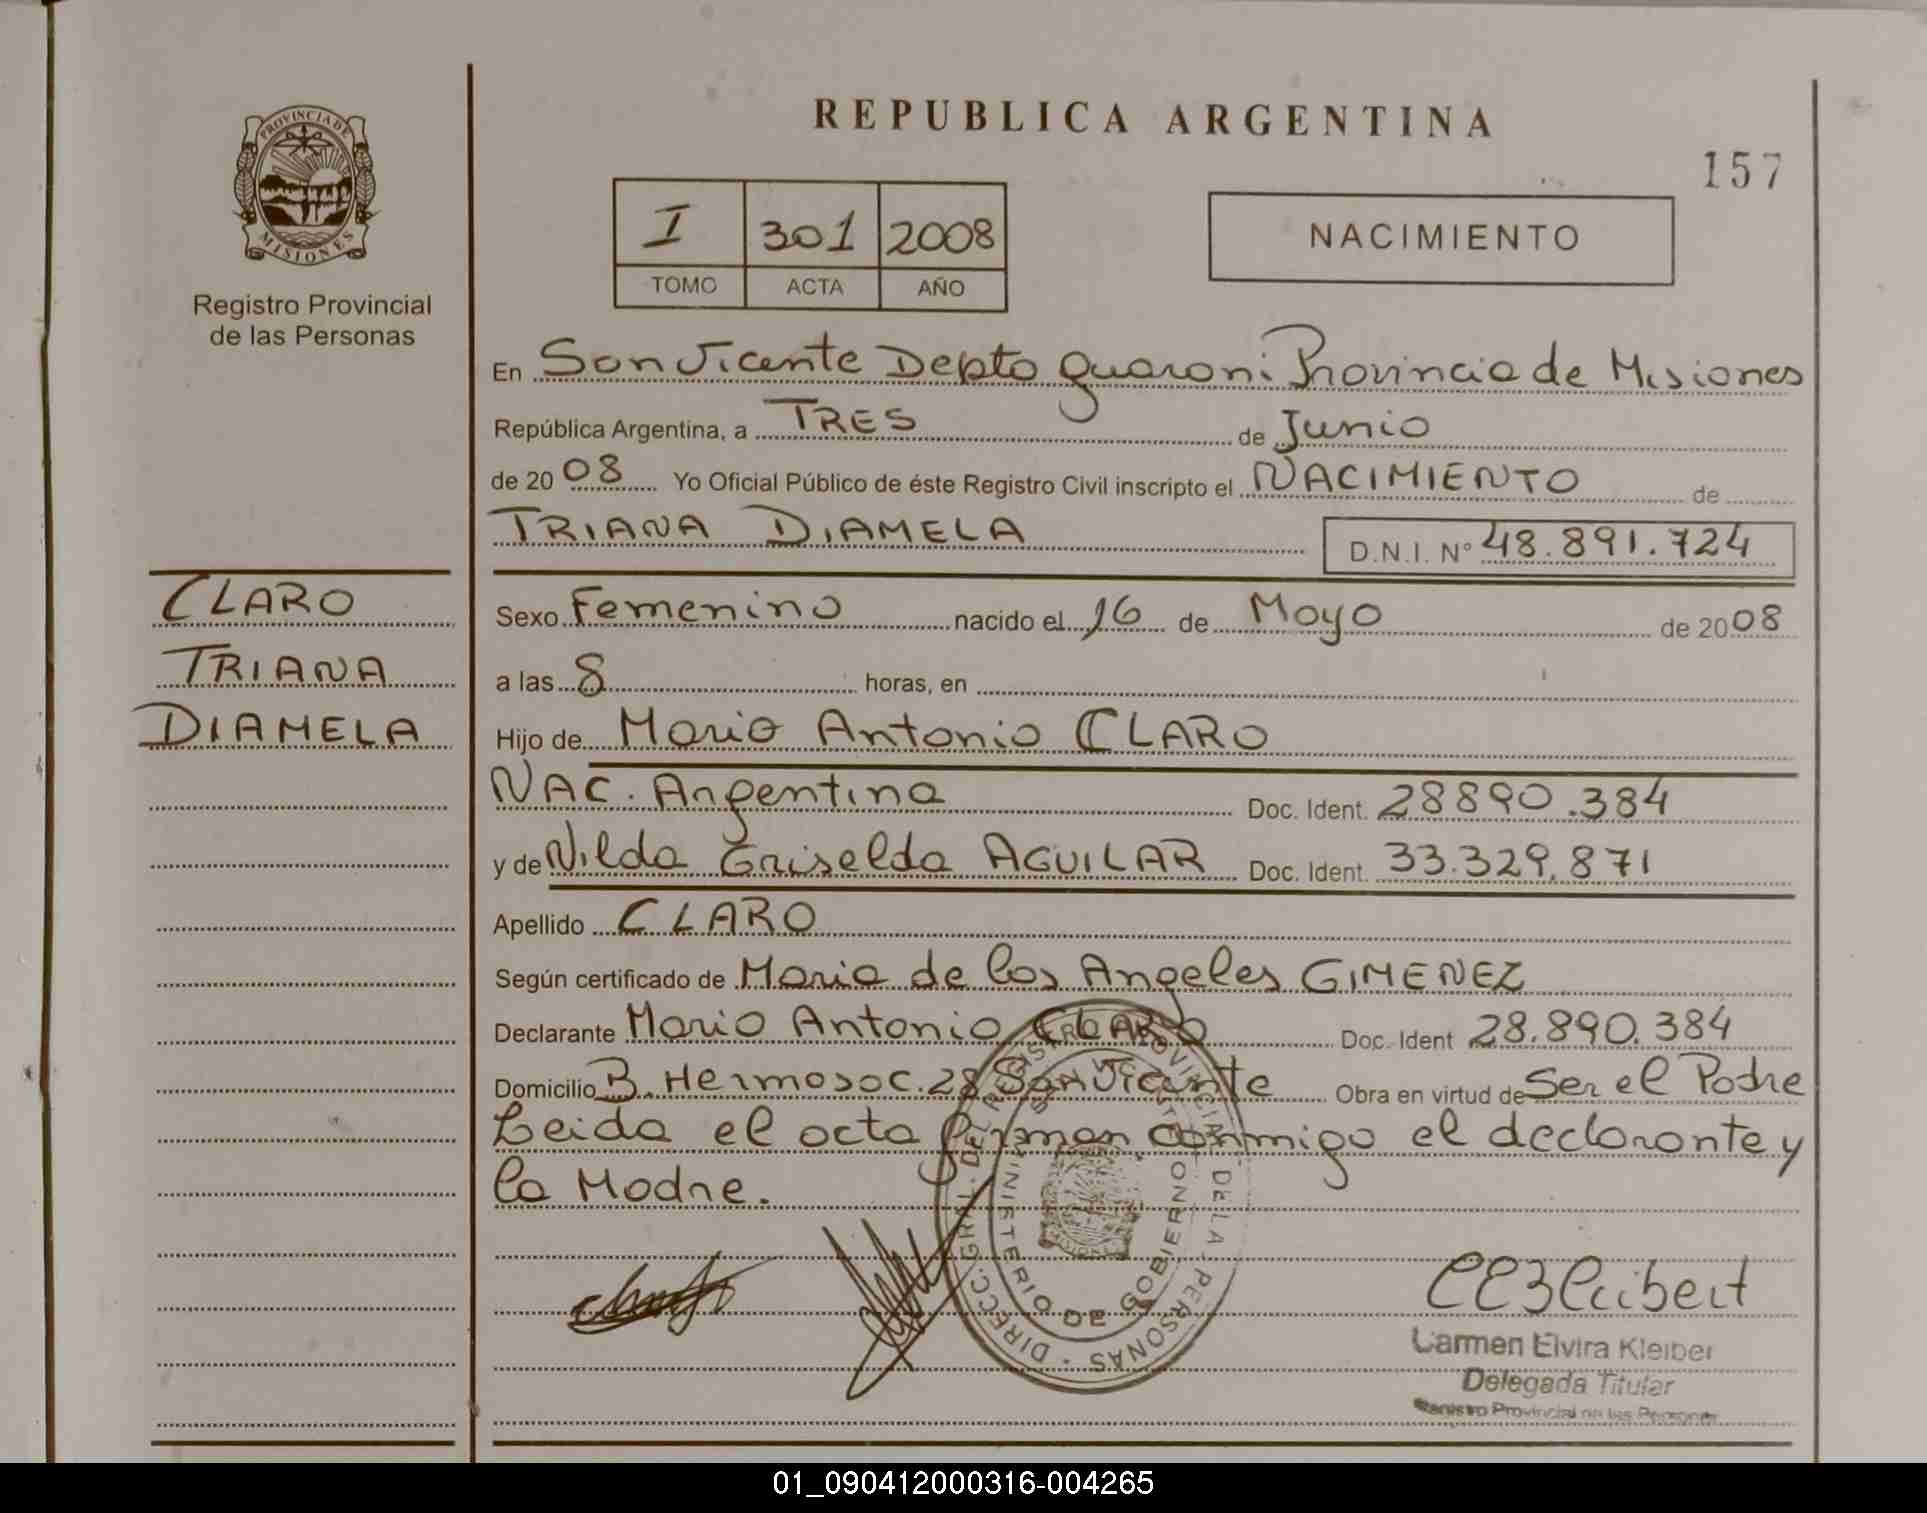 REPUBLICA ARGENTINA
157
PROVINCIA DE
MISIONES
Registro Provincial
de las Personas
I 301 2008
TOMO ACTA AÑO
NACIMIENTO
En San Vicente Depto Guarani Provincia de Misiones
República Argentina, a TRES de Junio
de 2008 Yo Oficial Público de éste Registro Civil inscripto el NACIMIENTO de
TRIANA DIAMELA D.N.I. Nº 48.891.724
CLARO
TRIANA
DIAMELA
Sexo Femenino nacido el 16 de Mayo de 2008
a las 8 horas, en
Hijo de Mario Antonio CLARO
NAC. Argentina Doc. Ident. 28890.384
y de Nilda Griselda AGUILAR Doc. Ident. 33.329.871
Apellido CLARO
Según certificado de Maria de los Angeles GIMENEZ
Declarante Mario Antonio CLARO Doc. Ident 28.890.384
Domicilio B. Hermoso C.28 San Vicente Obra en virtud de Ser el Padre
Leida el acta firman conmigo el declarante y
la Madre.
DIRECC. GRAL. DEL REGISTRO PROVINCIAL DE LA PERSONAS
SAN VICENTE
MINISTERIO DE GOBIERNO
Carmen Elvira Kleiber
Delegada Titular
Registro Provincial de las Personas
01_090412000316-004265